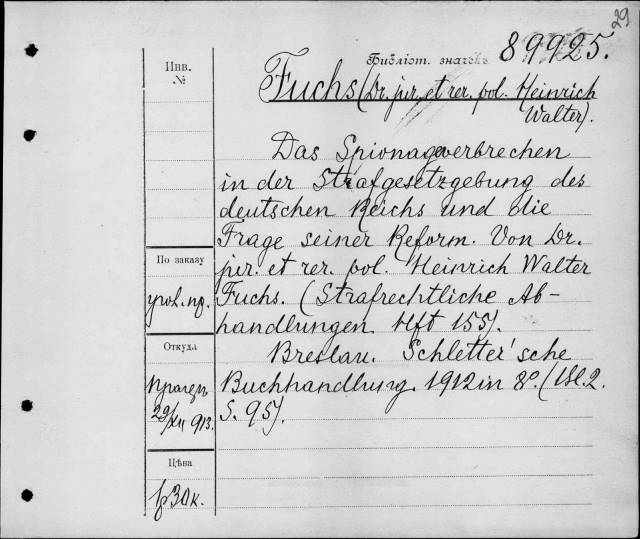 29
Библіот. значекъ 89925.
Инв.
№
Fuchs (Dr. jur. et rer. pol. Heinrich
Walter).
Das Spionageverbrechen
in der Strafgesetzgebung des
deutschen Reichs und die
Frage seiner Reform. Von Dr.
jur. et rer. pol. Heinrich Walter
Fuchs. (Strafrechtliche Ab-
handlungen. Hft 155).
Breslau. Schletter'sche
Buchhandlung. 1912 in 8º. (Bl. 2.
S. 95).
По заказу
угол. пр.
Откуда
29/XII 913.
Цѣна
1р30к.